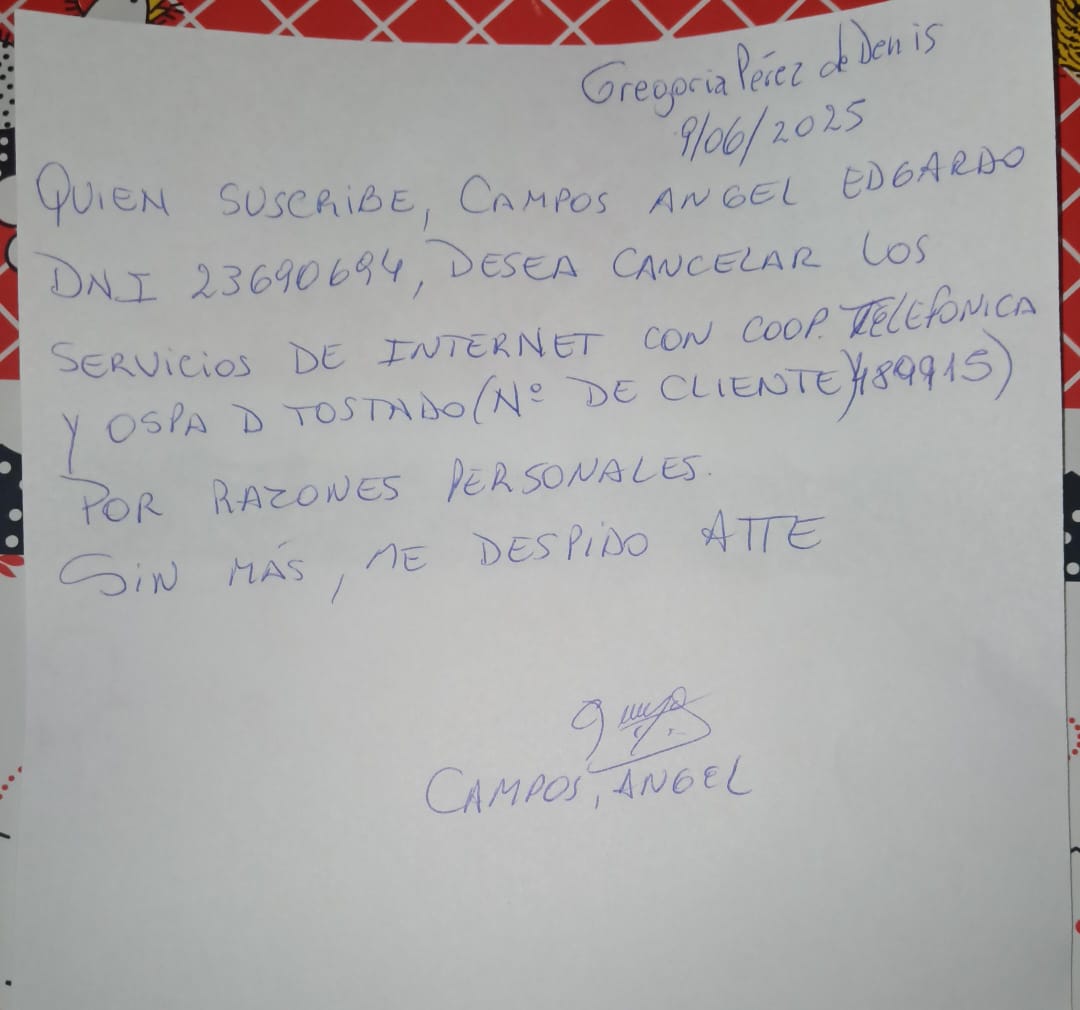 Gregoria Pérez de Denis
9/06/2025
QUIEN SUSCRIBE, CAMPOS ANGEL EDGARDO
DNI 23690694, DESEA CANCELAR LOS
SERVICIOS DE INTERNET CON COOP. TELEFONICA
Y OSPA D TOSTADO (Nº DE CLIENTE) 489915)
POR RAZONES PERSONALES.
SIN MÁS, ME DESPIDO ATTE
CAMPOS, ANGEL